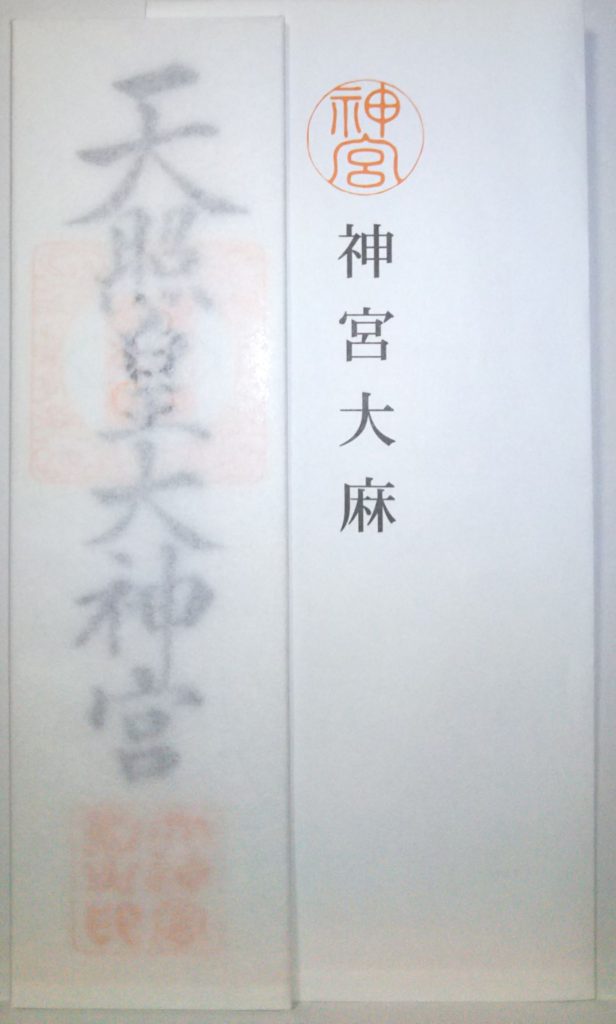 天照皇大神宮
神宮
神宮大麻